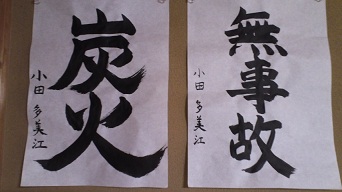 炭火
小田 多美江
無事故
小田 多美江